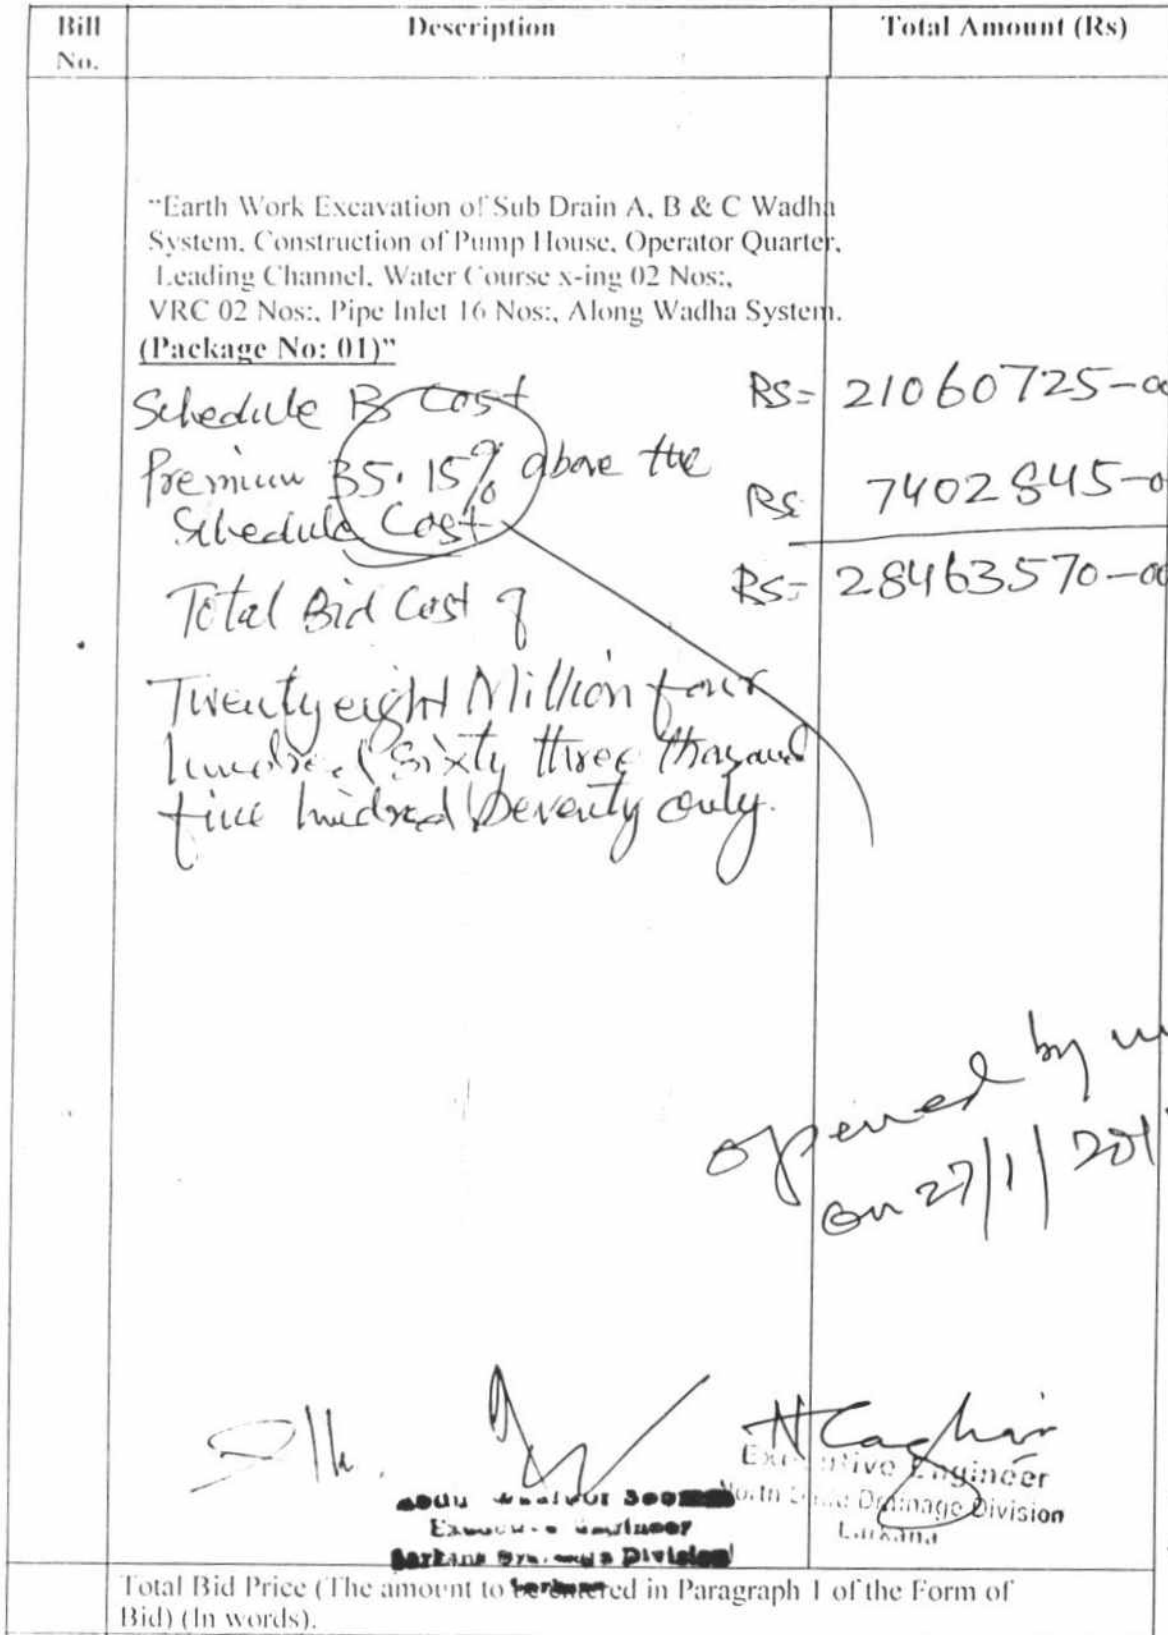 Bill No.
Description
Total Amount (Rs)
“Earth Work Excavation of Sub Drain A, B & C Wadha
System, Construction of Pump House, Operator Quarter,
Leading Channel, Water Course x-ing 02 Nos:,
VRC 02 Nos:, Pipe Inlet 16 Nos:, Along Wadha System.
(Package No: 01)”
Schedule B Cost RS= 21060725-00
Premium 35.15% above the
Schedule Cost RS 7402845-0
Total Bid Cost of RS= 28463570-00
Twenty eight Million four
hundred Sixty three thousand
five hundred Seventy only.
opened by
on 27/1/201
Executive Engineer
North Drainage Division
Larkana
Executive Engineer
Larkana Drainage Division
Total Bid Price (The amount to be entered in Paragraph 1 of the Form of
Bid) (In words).